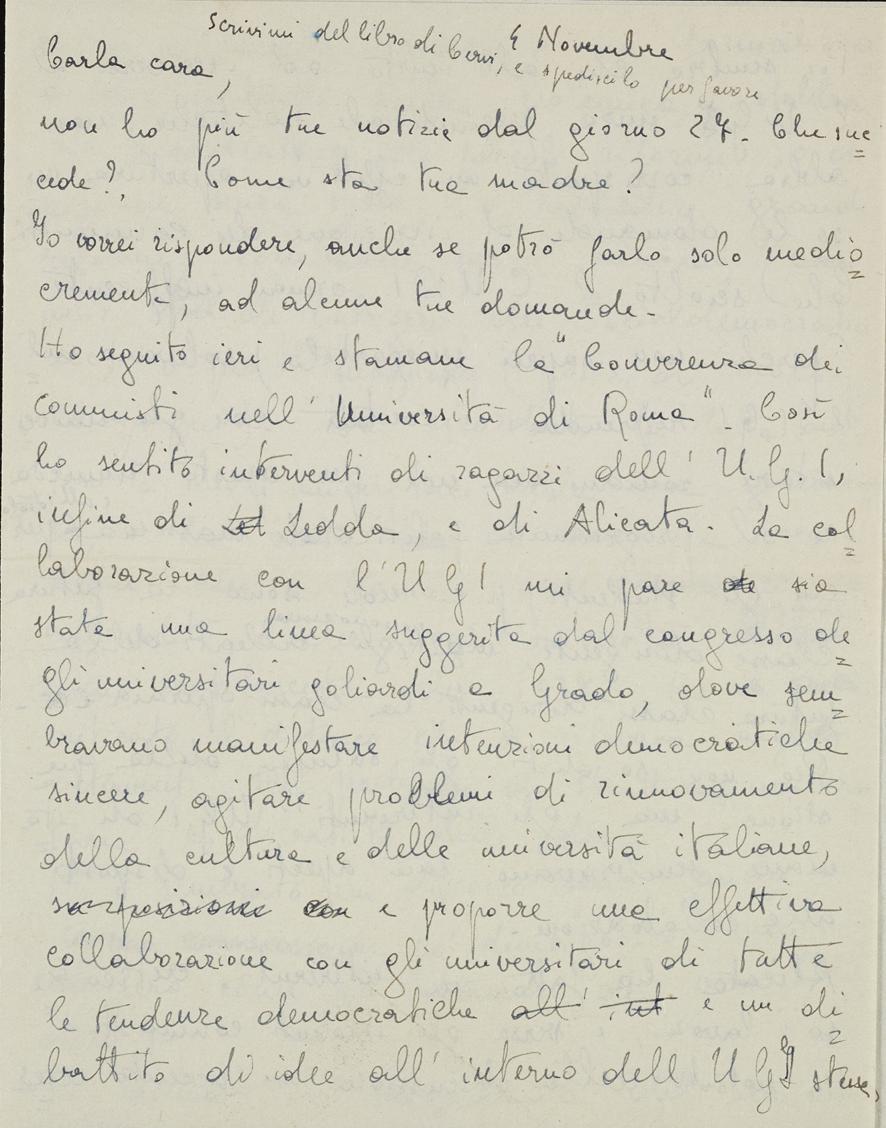 Scrivimi del libro di Cervi, 4 Novembre
e spediscilo per favore
Carla cara,
non ho più tue notizie dal giorno 27. Che suc=
cede?, Come sta tua madre?
Io vorrei rispondere, anche se potrò farlo solo medio=
cremente, ad alcune tue domande.
Ho seguito ieri e stamane la "Converenza dei
comunisti nell'Università di Roma". Così
ho sentito interventi di ragazzi dell'U.G.I,
infine di Ledda, e di Alicata. La col=
laborazione con l'UGI mi pare sia
stata una linea suggerita dal congresso de=
gli universitari goliardi a Grado, dove sem=
bravano manifestare intenzioni democratiche
sincere, agitare problemi di rinnovamento
della cultura e delle università italiane,
su posizioni con e proporre una effettiva
collaborazione con gli universitari di tutte
le tendenze democratiche all' int e un di=
battito di idee all'interno dell UGI stessa,